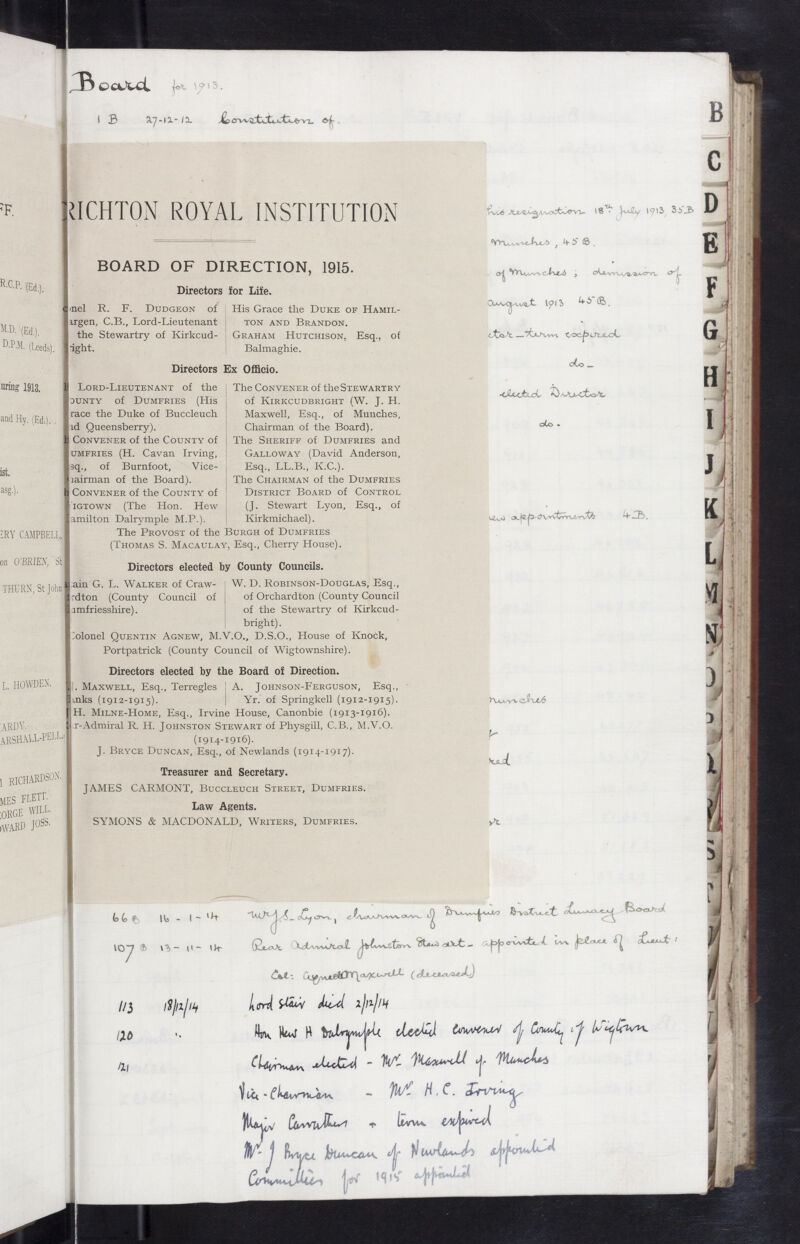 Board for 1913.
1 B 27-12-12 Constitution of.
RICHTON ROYAL INSTITUTION
BOARD OF DIRECTION, 1915.
Directors for Life.
nel R. F. DUDGEON of
argen, C.B., Lord-Lieutenant
the Stewartry of Kirkcud-
right.
His Grace the DUKE OF HAMIL-
TON AND BRANDON.
GRAHAM HUTCHISON, Esq., of
Balmaghie.
Directors Ex Officio.
LORD-LIEUTENANT of the
OUNTY of DUMFRIES (His
race the Duke of Buccleuch
d Queensberry).
CONVENER of the COUNTY of
UMFRIES (H. Cavan Irving,
sq., of Burnfoot, Vice-
airman of the Board).
CONVENER of the COUNTY of
IGTOWN (The Hon. Hew
amilton Dalrymple M.P.).
The CONVENER of the STEWARTRY
of KIRKCUDBRIGHT (W. J. H.
Maxwell, Esq., of Munches,
Chairman of the Board).
The SHERIFF of DUMFRIES and
GALLOWAY (David Anderson,
Esq., LL.B., K.C.).
The CHAIRMAN of the DUMFRIES
DISTRICT BOARD of CONTROL
(J. Stewart Lyon, Esq., of
Kirkmichael).
The PROVOST of the BURGH OF DUMFRIES
(THOMAS S. MACAULAY, Esq., Cherry House).
Directors elected by County Councils.
ain G. L. WALKER of Craw-
rdton (County Council of
umfriesshire).
W. D. ROBINSON-DOUGLAS, Esq.,
of Orchardton (County Council
of the Stewartry of Kirkcud-
bright).
Colonel QUENTIN AGNEW, M.V.O., D.S.O., House of Knock,
Portpatrick (County Council of Wigtownshire).
Directors elected by the Board of Direction.
. MAXWELL, Esq., Terregles
anks (1912-1915).
A. JOHNSON-FERGUSON, Esq.,
Yr. of Springkell (1912-1915).
H. MILNE-HOME, Esq., Irvine House, Canonbie (1913-1916).
r-Admiral R. H. JOHNSTON STEWART of Physgill, C.B., M.V.O.
(1914-1916).
J. BRYCE DUNCAN, Esq., of Newlands (1914-1917).
Treasurer and Secretary.
JAMES CARMONT, BUCCLEUCH STREET, DUMFRIES.
Law Agents.
SYMONS & MACDONALD, WRITERS, DUMFRIES.
his resignation 18th July 1913 35 B
Munches, 45 B.
of Munches; demission of
August 1913 45 B.
ctor - term expired
do -
elected Director
do.
new appointments 4 B.
Munches
red
yr
66 B 16-1-14 Mr J. S. Lyon, chairman of Dumfries District Lunacy Board
107 B 13-11-14 Rear Admiral Johnston Stewart - appointed in place of Lieut:
Col: Maxwell (deceased)
113 18/12/14 Lord Stair died 2/12/14
120 " Hon Hew H Dalrymple elected convener of County of Wigtown
121 Chairman elected - Mr Maxwell of Munches
Vice-Chairman - Mr H. C. Irving
Major Carruthers - term expired
Mr J Bryce Duncan of Newlands appointed
Committees for 1915 appointed
B
C
D
E
F
G
H
I
J
K
L
M
N
O
P
Q
R
S
T
FF.
R.C.P. (Ed.).
M.D. (Ed.).
D.P.M. (Leeds).
uring 1913.
and Hy. (Ed.).
ist.
asg.).
ERY CAMPBELL,
on O'BRIEN, St
THURN, St John
L. HOWDEN.
ARDY.
ARSHALL-PELL.
RICHARDSON.
MES FLETT.
ORGE WILL.
WARD JOSS.